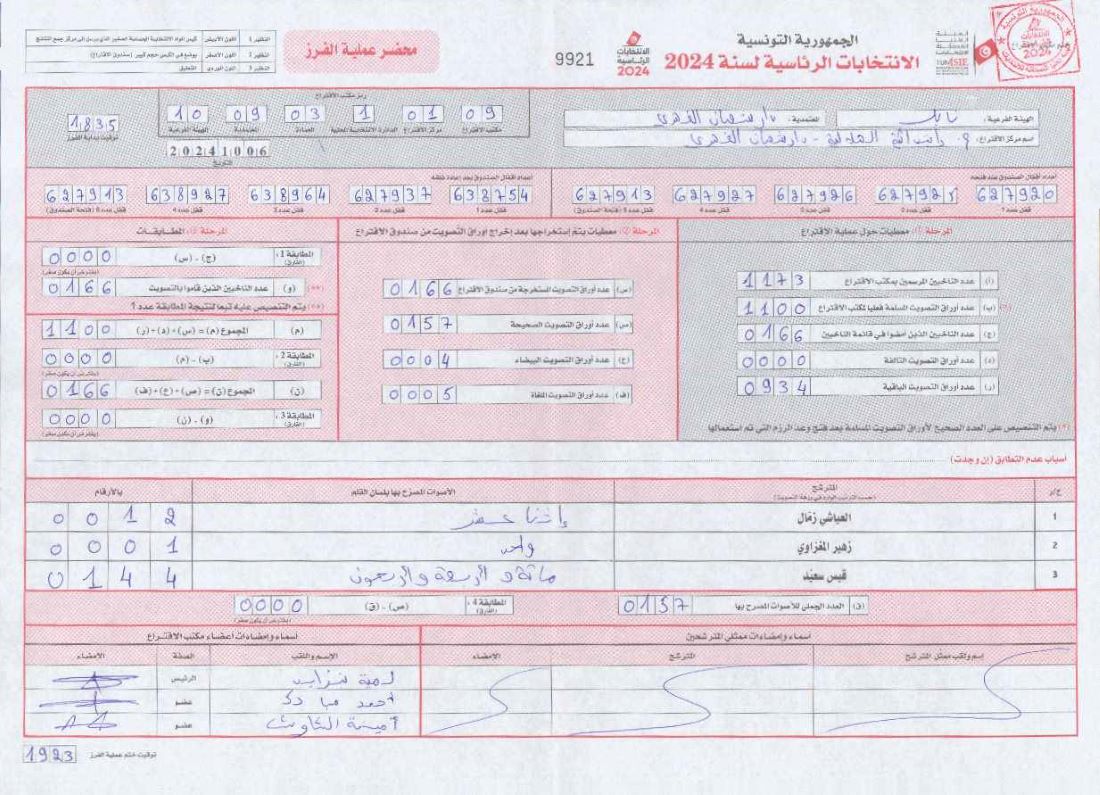 الجمهورية التونسية
الانتخابات الرئاسية لسنة 2024
9921
الانتخابات الرئاسية 2024
محضر عملية الفرز
النظير 1 اللون الأبيض
النظير 2 اللون الأصفر يوضع في الكيس حجم كبير (صندوق الاقتراع)
النظير 3 اللون الوردي التعليق
الهيئة الفرعية: نابل
المعتمدية: دار شعبان الفهري
اسم مركز الاقتراع: دار شعبان الفهري
رمز مكتب الاقتراع
09 01 1 03 09 10
مكتب الاقتراع مركز الاقتراع الدائرة الانتخابية المحلية العمادة المعتمدية الهيئة الفرعية
1835
توقيت بداية الفرز
20241006
التاريخ
أعداد أقفال الصندوق عند فتحه
627920 627925 627926 627927 627913
قفل عدد 1 قفل عدد 2 قفل عدد 3 قفل عدد 4 قفل عدد 5 (فتحة الصندوق)
أعداد أقفال الصندوق بعد إعادة غلقه
638754 627937 638964 638927 627913
المرحلة (1): معطيات حول عملية الاقتراع
(أ) عدد الناخبين المرسمين بمكتب الاقتراع 1173
(ب) عدد أوراق التصويت المسلمة فعليا لمكتب الاقتراع 1100
(ج) عدد الناخبين الذين أمضوا في قائمة الناخبين 0166
(د) عدد أوراق التصويت التالفة 0000
(ر) عدد أوراق التصويت الباقية 0934
(*) يتم التنصيص على العدد الصحيح لأوراق التصويت المسلمة بعد فتح وعد الرزم التي تم استعمالها
المرحلة (2): معطيات يتم إستخراجها بعد إخراج أوراق التصويت من صندوق الاقتراع
(س) عدد أوراق التصويت المستخرجة من صندوق الاقتراع 0166
(ص) عدد أوراق التصويت الصحيحة 0157
(ع) عدد أوراق التصويت البيضاء 0004
(ف) عدد أوراق التصويت الملغاة 0005
المرحلة (3): المطابقات
المطابقة 1: (الفارق) (ج) - (س) 0000
(يفترض أن يكون صفر)
(**) (و) عدد الناخبين الذين قاموا بالتصويت 0166
(**) يتم التنصيص عليه تبعا لنتيجة المطابقة عدد 1
(م) المجموع (م) = (س)+(د)+(ر) 1100
المطابقة 2: (الفارق) (ب) - (م) 0000
(يفترض أن يكون صفر)
(ن) المجموع (ن) = (ص)+(ع)+(ف) 0166
المطابقة 3: (الفارق) (و) - (ن) 0000
(يفترض أن يكون صفر)
أسباب عدم التطابق (إن وجدت)
ع/ر المترشح الأصوات المصرح بها بلسان القلم بالأرقام
(حسب الترتيب الوارد في ورقة التصويت)
1 العياشي زمال إثنا عشر 0012
2 زهير المغزاوي واحد 0001
3 قيس سعيّد مائة و اربعة و اربعون 0144
(ق) العدد الجملي للأصوات المصرح بها 0157
المطابقة 4: (الفارق) (ص) - (ق) 0000
(يفترض أن يكون صفر)
أسماء وإمضاءات ممثلي المترشحين
إسم ولقب ممثل المترشح المترشح الامضاء
أسماء وإمضاءات أعضاء مكتب الاقتراع
الاسم واللقب الصفة الامضاء
الرئيس
أحمد عضو
عضو
توقيت ختم عملية الفرز 1923